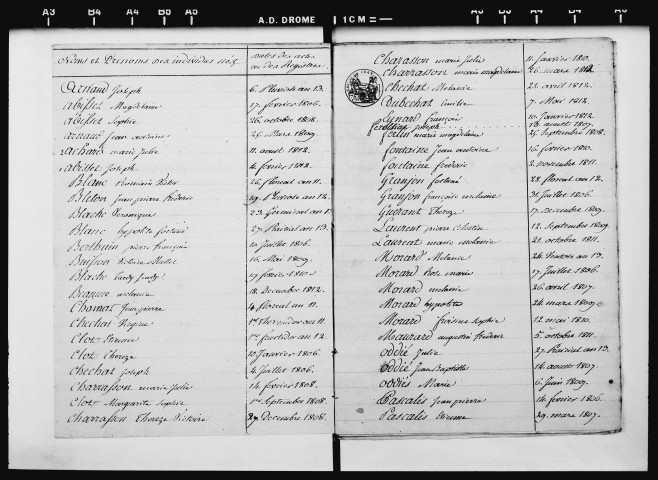 A3 B4 A4 B5 A5 A.D. DROME 1 CM A5 B5 A4 B4 A3
Noms et Prenoms des individus nés
dates des actes
ou des Registres
Arnaud Joseph 6. Pluviose an 13.
abisset Magdelaine 17. fevrier 1806.
abisset Sophie 26. octobre 1808.
arnaud Jean antoine 25. mars 1809.
achard marie Julie 11. aoust 1812.
abisset Joseph 4. fevrier 1812.
Blanc Romain Victor 26. floreal an 11.
Bleton Jean pierre frederic 29. Nivose an 12.
Blache Veronique 23. Germinal an 13.
Blanc hypolite fortuné 27. Prairial an 13.
Berthuin pierre françois 10. Juillet 1806.
Buisson 16. Mai 1809.
Blache 17. fevrier 1810.
melanie 18. Decembre 1812.
Chamat Jean pierre 4. floreal an 11.
Chechat Regine 1er thermidor an 11.
Clot Etienne 1er fructidor an 12.
Clot Thereze 10. Janvier 1806.
Chechat Joseph 4. Juillet 1806.
Charrasson marie Julie 14. fevrier 1808.
Clot Margarite Sophie 1er Septembre 1808.
Charrasson Thereze Victoire 29. Decembre 1808.
Charasson marie Julie 11. Janvier 1810.
Charrasson marie magdelaine 26. mars 1812.
Chechat Melanie 25. avril 1812.
Dubechat Emilie 7. Mai 1812.
Eynard françois 10. Janvier 1812
Joseph 13. aoust 1807.
ferlin marie magdelaine 25. Septembre 1808.
fontaine Jean antoine 16. fevrier 1810.
fontaine frederic 2. novembre 1811.
Granjon fortuné 28. floreal an 12.
Granjon françoise melanie 31. Juillet 1806.
Guerant Thereze 17. Decembre 1809.
Laurent pierre Celestin 12. Septembre 1809
Laurent marie melanie 21. octobre 1811.
Morard Melanie 24. Ventose an 13.
Morard Rose marie 17. Juillet 1806.
Morard melanie 26. avril 1807.
Morard hypolite 24. mars 1809.
Morard Sophie 12. mai 1810.
Maurard augustin frederic 5. octobre 1811.
oddié Julie 27. Prairial an 13.
oddié Jean Baptiste 14. aoust 1807.
oddiés Marie 6. Juin 1809.
Pascalis Jean pierre 14. fevrier 1806.
Pascalis Etienne 29. mars 1807.